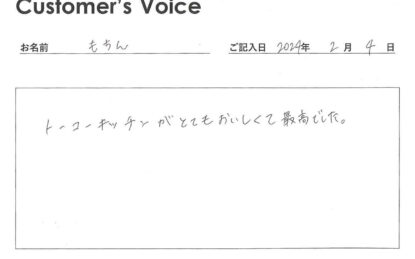 Customer's Voice
お名前 もちん ご記入日 2024年 2月 4日
トーコーキッチンがとてもおいしくて最高でした。